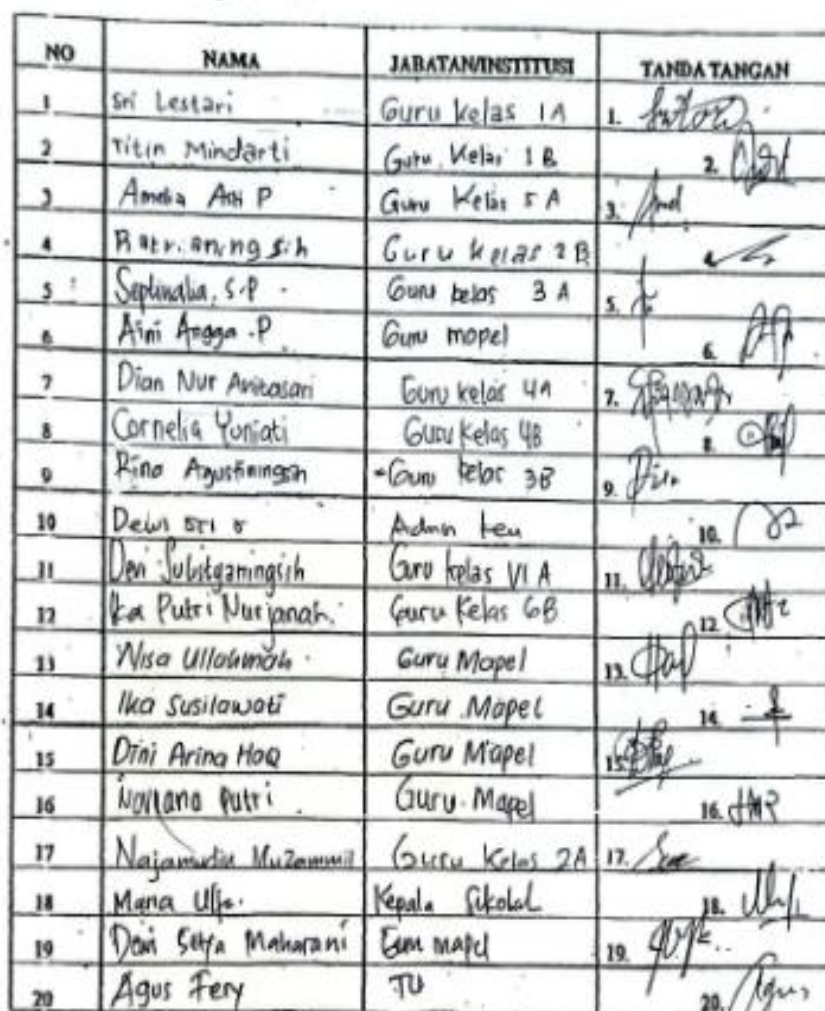 NO NAMA JABATAN/INSTITUSI TANDA TANGAN
1 Sri Lestari Guru Kelas 1A 1.
2 Titin Mindarti Guru Kelas 1B 2.
3 Amelia P Guru Kelas 5A 3. Amel
4 Ratrianingsih Guru Kelas 2B 4.
5 S.P Guru kelas 3A 5.
6 Aini Angga .P Guru mapel 6.
7 Dian Nur Anitasari Guru kelas 4A 7.
8 Cornelia Yuniati Guru Kelas 4B 8.
9 Rina Agustiningsih Guru kelas 3B 9.
10 Dewi Sri S Admin keu 10.
11 Devi Guru kelas VI A 11.
12 Ika Putri Nurjanah. Guru Kelas 6B 12.
13 Nisa Ullahmah. Guru Mapel 13.
14 Ika Susilawati Guru Mapel 14.
15 Dini Arina Haq Guru Mapel 15.
16 Putri Guru Mapel 16.
17 Najamudin Muzammil Guru Kelas 2A 17.
18 Maria Kepala Sekolah 18.
19 Dewi Setya Maharani Guru mapel 19.
20 Agus Fery TU 20. Agus